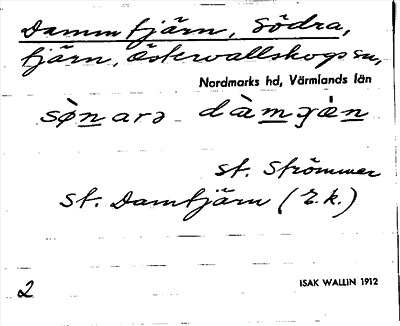 Dammtjärn, Södra,
tjärn, Östervallskogs sn,
Nordmarks hd, Värmlands län
sø̀narə dàmɟæ̀n
St. Strömmer
St. Damtjärn (E.k.)
2
ISAK WALLIN 1912